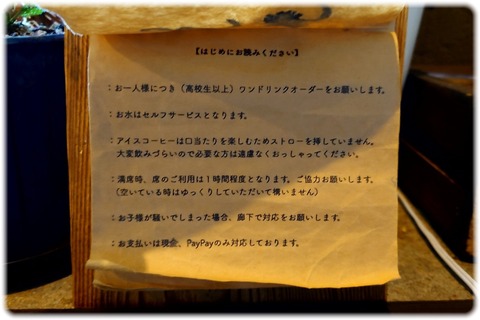 【はじめにお読みください】
:お一人様につき（高校生以上）ワンドリンクオーダーをお願いします。
:お水はセルフサービスとなります。
:アイスコーヒーは口当たりを楽しむためストローを挿していません。
大変飲みづらいので必要な方は遠慮なくおっしゃってください。
:満席時、席のご利用は１時間程度となります。ご協力お願いします。
（空いている時はゆっくりしていただいて構いません）
:お子様が騒いでしまった場合、廊下で対応をお願いします。
:お支払いは現金、PayPayのみ対応しております。